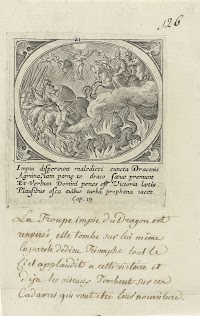 126
21
Impia disperiunt maledicti cuncta Draconis
Agmina, iam pronq̄ to draco sæue premunt
Et Verbum Domini penes est Victoria lætis
Plausibus ossa cibus turba prophana iacet
Cap. 19
La Troupe impie du Dragon est
renversé elle tombe sur lui même
la parole de dieu Triomphe tout le
Ciel applaudit a cette victoire et
déja les oiseaux Tombent sur ces
Cadavres qui vont être leur nourriture.